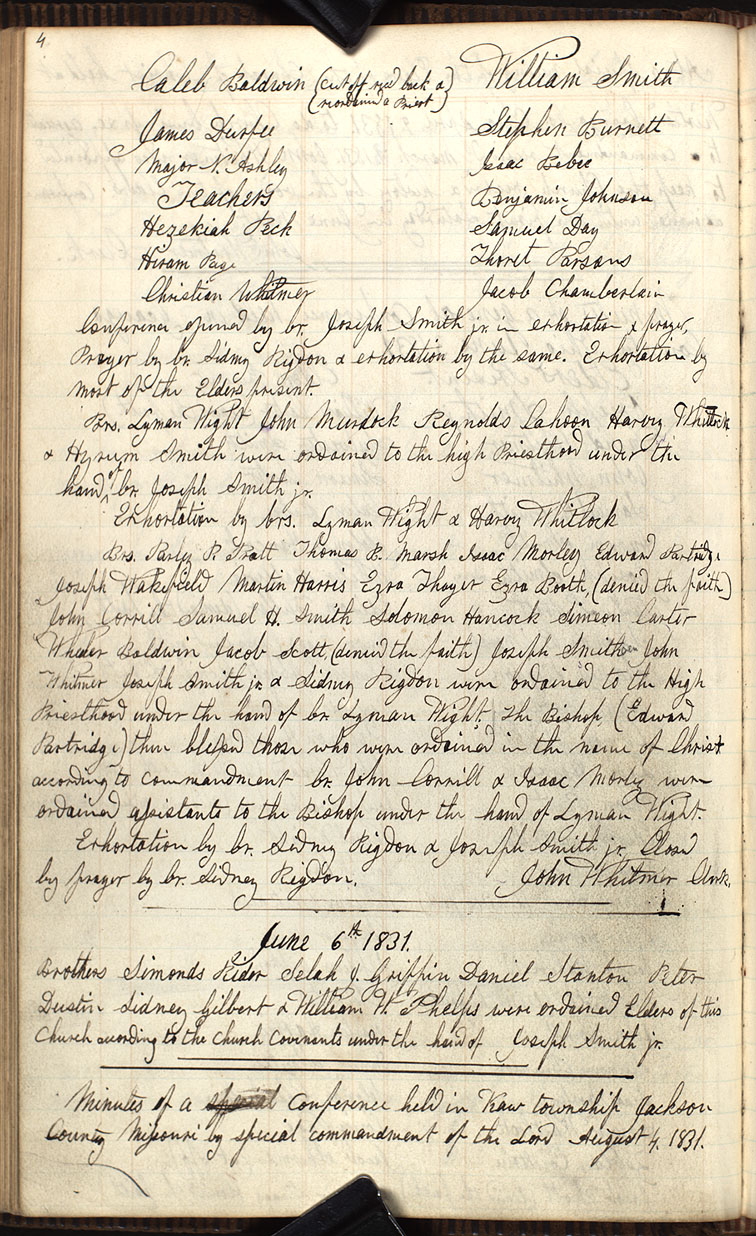 4
Caleb Baldwin (cut off recd back &
(reordained a Priest)
William Smith
James Durfee
Stephen Burnett
Major N. Ashley
Isaac Bebee
Teachers
Benjamin Johnson
Hezekiah Peck
Samuel Day
Hiram Page
Thoret Parsons
Christian Whitmer
Jacob Chamberlain
Conference opened by br. Joseph Smith jr. in exhortation & prayer,
Prayer by br. Sidney Rigdon & exhortation by the same. Exhortation by
most of the Elders present.
Brs. Lyman Wight John Murdock Reynolds Cahoon Harvey Whitlock
& Hyrum Smith were ordained to the high Priesthood under the
hand of br. Joseph Smith jr.
Exhortation by brs. Lyman Wight & Harvey Whitlock
Brs. Parley P. Pratt Thomas B. Marsh Isaac Morley Edward Partridge
Joseph Wakefield Martin Harris Ezra Thayer Ezra Booth, (denied the faith)
John Corrill Samuel H. Smith Solomon Hancock Simeon Carter
Wheeler Baldwin Jacob Scott, (denied the faith) Joseph Smith sen John
Whitmer Joseph Smith jr. & Sidney Rigdon were ordained to the High
Priesthood under the hand of br. Lyman Wight. The Bishop (Edward
Partridge) then blessed those who were ordained in the name of Christ
according to commandment br. John Corrill & Isaac Morley were
ordained assistants to the Bishop under the hand of Lyman Wight.
Exhortation by br. Sidney Rigdon & Joseph Smith jr. Closed
by prayer by br. Sidney Rigdon.
John Whitmer Clerk.
June 6th 1831.
Brothers Simonds Rider Selah J. Griffin Daniel Stanton Peter
Dustin Sidney Gilbert & William W. Phelps were ordained Elders of this
Church according to the Church Covenants under the hand of Joseph Smith jr.
Minutes of a special Conference held in Kaw township Jackson
County Missouri by special commandment of the Lord August 4. 1831.